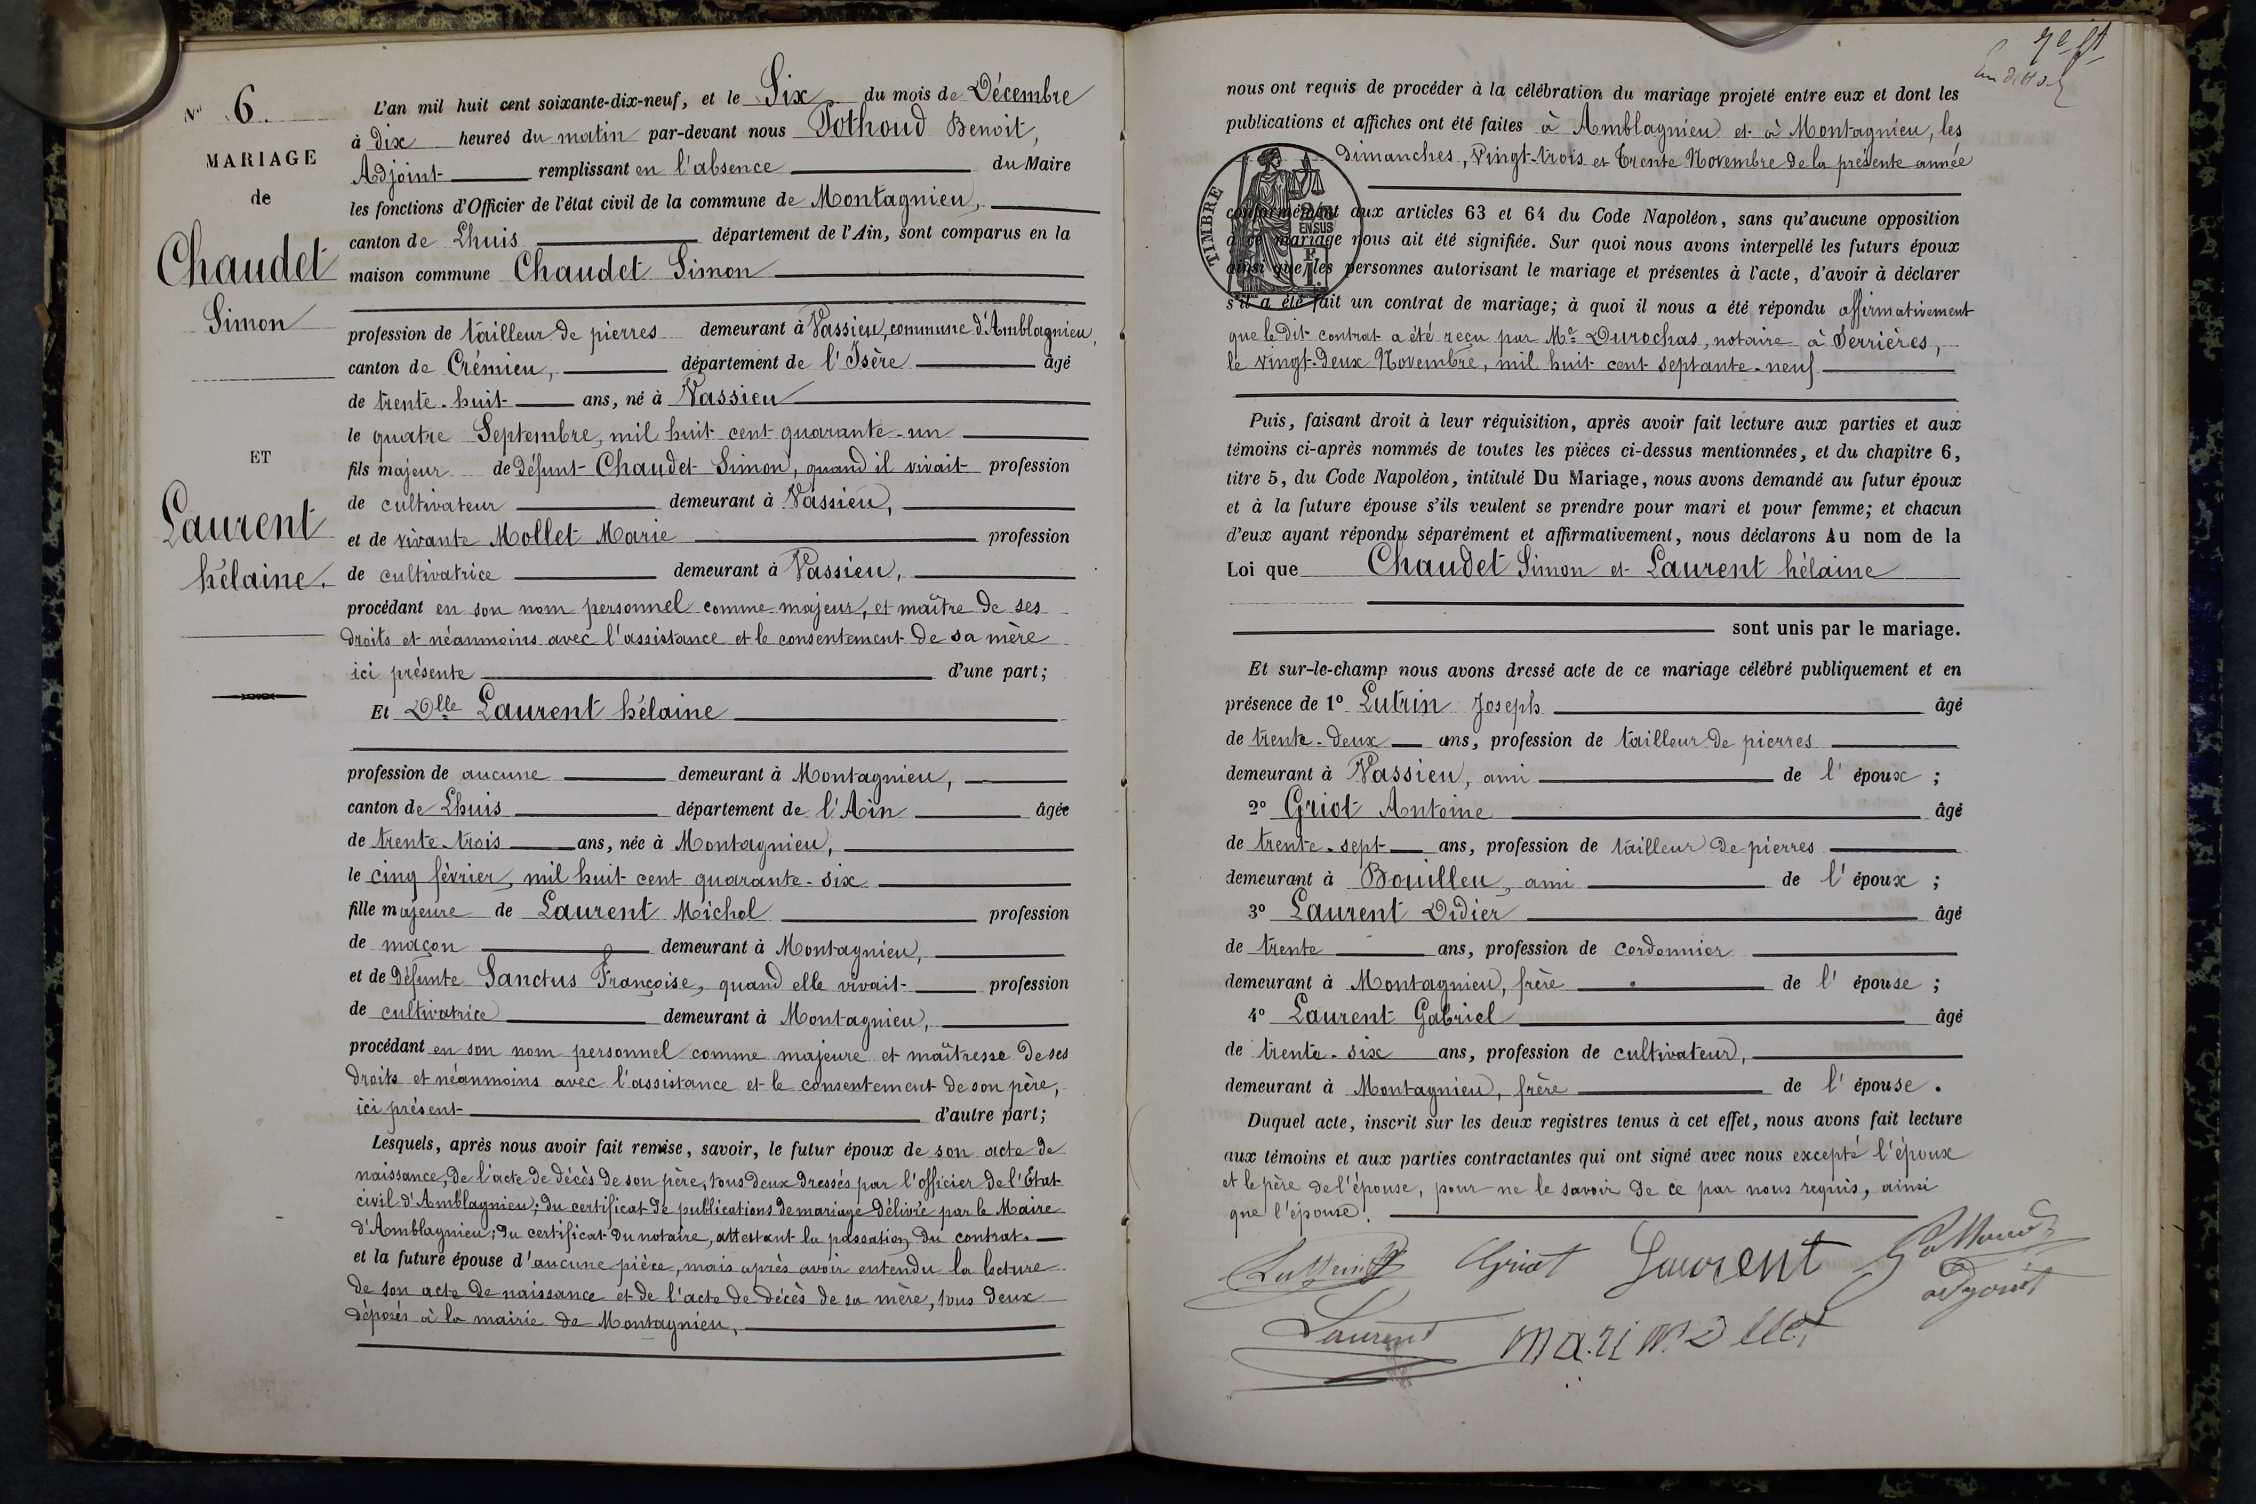 N° 6.
MARIAGE
de
Chaudet
Simon
ET
Laurent
hélaine.
L'an mil huit cent soixante-dix-neuf, et le Six du mois de Décembre
à dix heures du matin par-devant nous Pothoud Benoit,
Adjoint remplissant en l'absence du Maire
les fonctions d'Officier de l'état civil de la commune de Montagnieu,
canton de Lhuis département de l'Ain, sont comparus en la
maison commune Chaudet Simon
profession de tailleur de pierres demeurant à Vassieu, commune d'Amblagnieu,
canton de Crémieu, département de l'Isère âgé
de trente-huit ans, né à Vassieu
le quatre Septembre, mil huit cent quarante-un
fils majeur de défunt Chaudet Simon, quand il vivait profession
de cultivateur demeurant à Vassieu,
et de vivante Mollet Marie profession
de cultivatrice demeurant à Vassieu,
procédant en son nom personnel comme majeur, et maître de ses
droits et néanmoins avec l'assistance et le consentement de sa mère
ici présente d'une part;
Et Dlle Laurent hélaine
profession de aucune demeurant à Montagnieu,
canton de Lhuis département de l'Ain âgée
de trente-trois ans, née à Montagnieu,
le cinq février, mil huit cent quarante-six
fille majeure de Laurent Michel profession
de maçon demeurant à Montagnieu,
et de défunte Sanctus Françoise, quand elle vivait profession
de cultivatrice demeurant à Montagnieu,
procédant en son nom personnel comme majeure et maîtresse de ses
droits et néanmoins avec l'assistance et le consentement de son père,
ici présent d'autre part;
Lesquels, après nous avoir fait remise, savoir, le futur époux de son acte de
naissance, de l'acte de décès de son père, tous deux dressés par l'officier de l'État
civil d'Amblagnieu; du certificat de publications de mariage délivré par le Maire
d'Amblagnieu; du certificat du notaire, attestant la passation du contrat.
et la future épouse d'aucune pièce, mais après avoir entendu la lecture
de son acte de naissance et de l'acte de décès de sa mère, tous deux
déposés à la mairie de Montagnieu,
nous ont requis de procéder à la célébration du mariage projeté entre eux et dont les
publications et affiches ont été faites à Amblagnieu et à Montagnieu, les
dimanches, Vingt-trois et trente Novembre de la présente année
TIMBRE
conformément aux articles 63 et 64 du Code Napoléon, sans qu'aucune opposition
à ce mariage nous ait été signifiée. Sur quoi nous avons interpellé les futurs époux
ainsi que les personnes autorisant le mariage et présentes à l'acte, d'avoir à déclarer
s'il a été fait un contrat de mariage; à quoi il nous a été répondu affirmativement
que le dit contrat a été reçu par Me Durochas, notaire à Serrières,
le vingt-deux Novembre, mil huit cent septante-neuf
Puis, faisant droit à leur réquisition, après avoir fait lecture aux parties et aux
témoins ci-après nommés de toutes les pièces ci-dessus mentionnées, et du chapitre 6,
titre 5, du Code Napoléon, intitulé Du Mariage, nous avons demandé au futur époux
et à la future épouse s'ils veulent se prendre pour mari et pour femme; et chacun
d'eux ayant répondu séparément et affirmativement, nous déclarons Au nom de la
Loi que Chaudet Simon et Laurent hélaine
sont unis par le mariage.
Et sur-le-champ nous avons dressé acte de ce mariage célébré publiquement et en
présence de 1° Lutrin Joseph âgé
de trente-deux ans, profession de tailleur de pierres
demeurant à Vassieu, ami de l'époux;
2° Griot Antoine âgé
de trente-sept ans, profession de tailleur de pierres
demeurant à Bouilleu, ami de l'époux;
3° Laurent Didier âgé
de trente ans, profession de cordonnier
demeurant à Montagnieu, frère de l'épouse;
4° Laurent Gabriel âgé
de trente-six ans, profession de cultivateur,
demeurant à Montagnieu, frère de l'épouse.
Duquel acte, inscrit sur les deux registres tenus à cet effet, nous avons fait lecture
aux témoins et aux parties contractantes qui ont signé avec nous excepté l'époux
et le père de l'épouse, pour ne le savoir de ce par nous requis, ainsi
que l'épouse.
Lutrin Griot Laurent Pothoud
adjoint
Laurent mari mollet